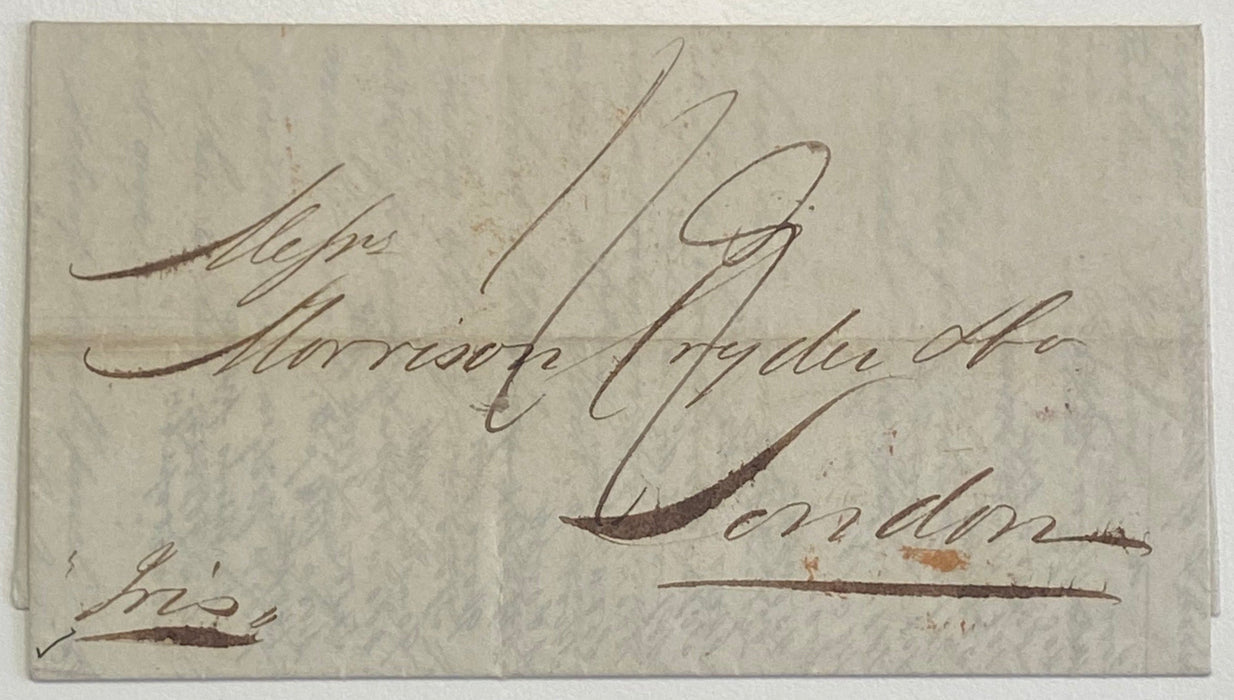 Messrs
Morrison Cryder & Co
London
"Iris"